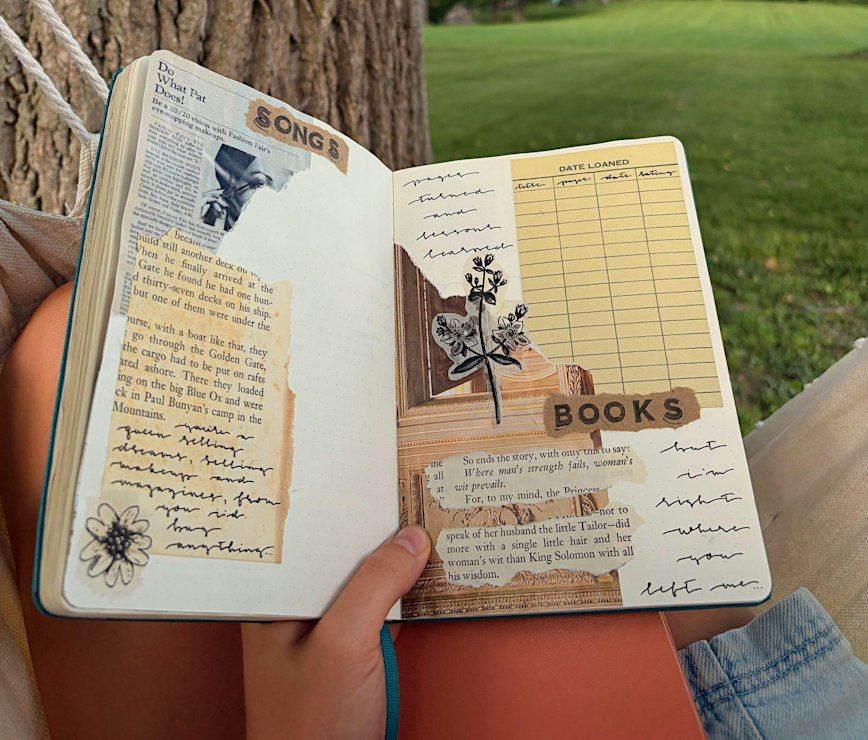 Do
What Pat
Does!
Be a 20/20 vision with Fashion Fair's
eye-stopping makeups.
SONGS
because
build still another deck on
When he finally arrived at the
Gate he found he had one hun-
d thirty-seven decks on his ship,
but one of them were under the
ourse, with a boat like that, they
go through the Golden Gate,
the cargo had to be put on rafts
ated ashore. There they loaded
ng on the big Blue Ox and were
ck in Paul Bunyan's camp in the
Mountains.
you're a
queen selling
dreams, selling
makeup and
magazines, from
you i'd
buy
anything...
pages
turned
and
lessons
learned
DATE LOANED
title pages date rating
BOOKS
me
g all
at
So ends the story, with only this to say:
Where man's strength fails, woman's
wit prevails.
For, to my mind, the Princess
—not to
speak of her husband the little Tailor—did
more with a single little hair and her
woman's wit than King Solomon with all
his wisdom.
but
i'm
right
where
you
left me...